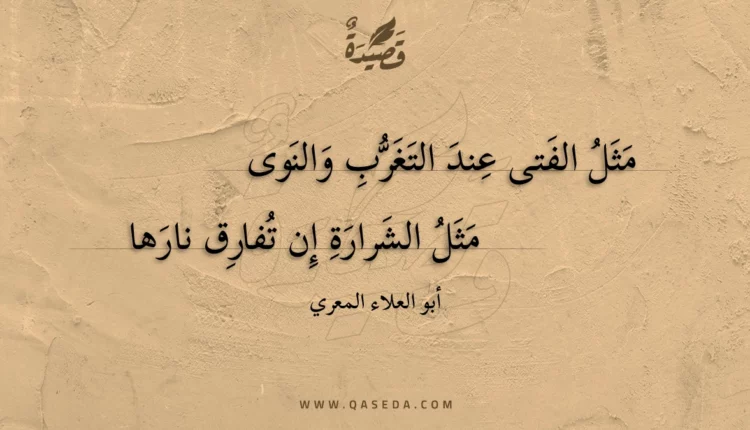 قَصِيدَةٌ
مَثَلُ الفَتى عِندَ التَغَرُّبِ وَالنَوى
مَثَلُ الشَرارَةِ إِن تُفارِق نارَها
أبو العلاء المعري
WWW.QASEDA.COM